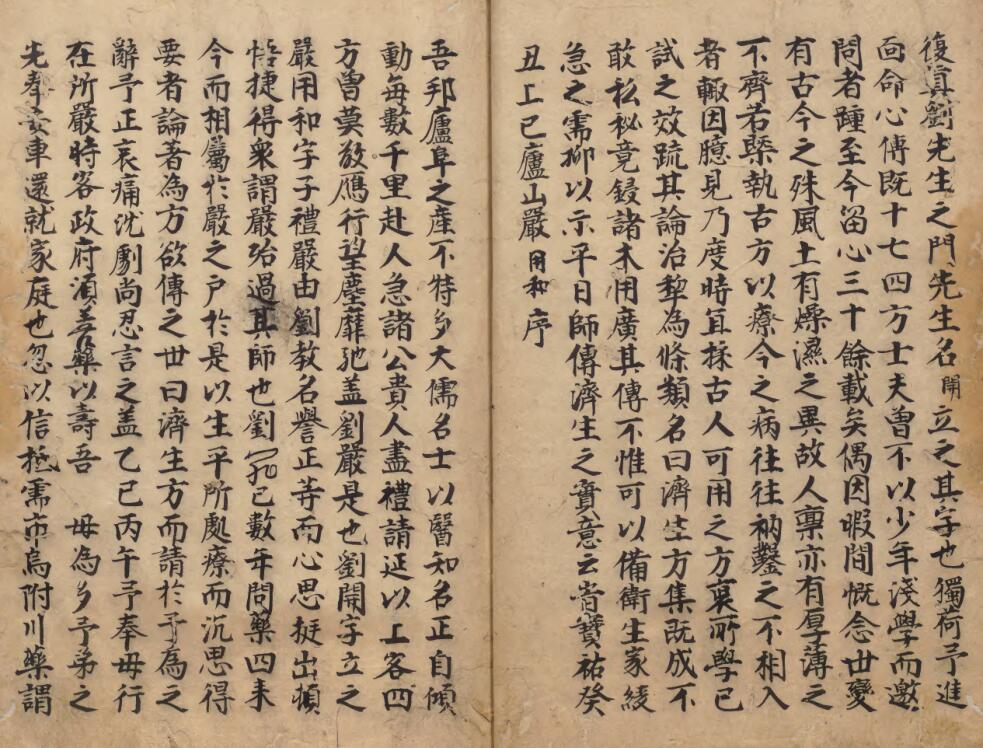 復真劉先生之門先生名開立之其字也獨荷予進
而命心傳既十七四方士夫曾不以少年淺學而邀
問者踵至今留心三十餘載矣偶因暇間慨念世變
有古今之殊風土有燥濕之異故人稟亦有厚薄之
不齊若槩執古方以療今之病往往枘鑿之不相入
者輙因臆見乃度時冝採古人可用之方裒所學已
試之效疏其論治犂為條類名曰濟生方集既成不
敢私秘竟鋟諸木用廣其傳不惟可以備衛生家緩
急之需抑以示平日師傳濟生之實意云旹寶祐癸
丑上巳廬山嚴用和序
吾邦廬阜之產不特多大儒名士以醫知名正自傾
動每數千里赴人急諸公貴人盡禮請延以上客四
方曾莫敢鴈行望塵靡弛盖劉嚴是也劉開字立之
嚴用和字子禮嚴由劉教名譽正等而心思挺出頓
悟捷得衆謂嚴殆過其師也劉死已數年問藥四来
今而相屬於嚴之户於是以生平所處療而沉思得
要者論著為方欲傳之世曰濟生方而請於予為之
辭予正哀痛沈劇尚忍言之盖乙巳丙午予奉母行
在所嚴時客政府湏善藥以壽吾 母為多予弟之
先奉安車還就家庭也忽以信抵需市烏附川藥謂